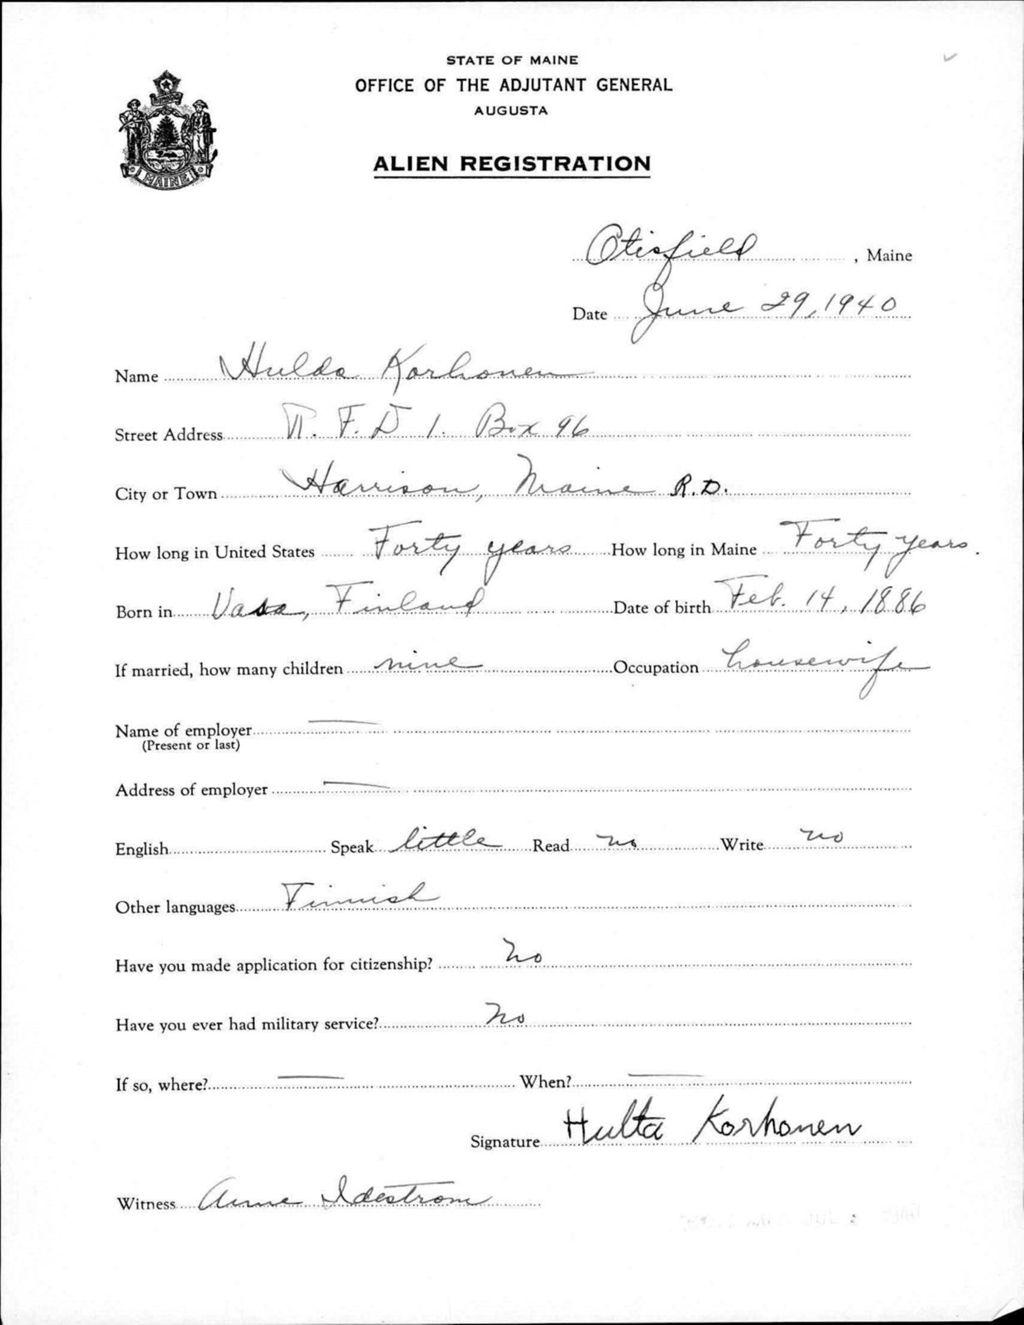 STATE OF MAINE
OFFICE OF THE ADJUTANT GENERAL
AUGUSTA
ALIEN REGISTRATION
MAINE
Otisfield, Maine
Date June 29, 1940
Name Hulda Korhonen
Street Address R. F. D 1. Box 96
City or Town Harrison, Maine R.D.
How long in United States Forty years How long in Maine Forty years.
Born in Vasa, Finland Date of birth Feb. 14, 1886
If married, how many children nine Occupation housewife
Name of employer
(Present or last)
Address of employer
English Speak little Read no Write no
Other languages Finnish
Have you made application for citizenship? No
Have you ever had military service? No
If so, where? When?
Signature Hulta Korhonen
Witness Anne Idestrom